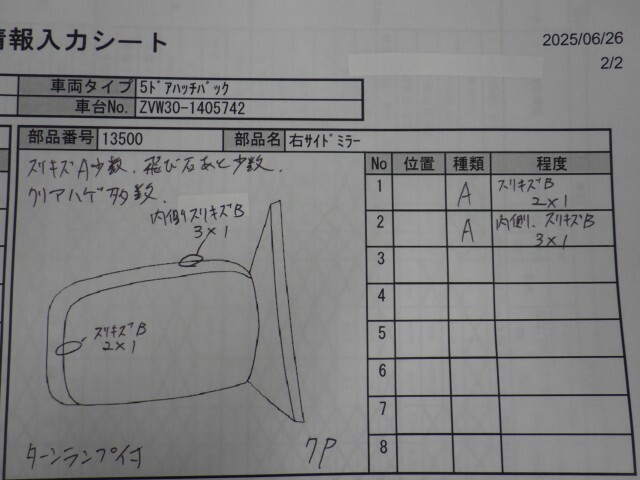 情報入力シート
2025/06/26
2/2
車両タイプ 5ﾄﾞｱﾊｯﾁﾊﾞｯｸ
車台No. ZVW30-1405742
部品番号 13500 部品名 右ｻｲﾄﾞﾐﾗｰ
スリキズA少数、飛び石あと少数、
クリアハゲ多数、
内側スリキズB
3×1
スリキズB
2×1
ターンランプ付
7P
No 位置 種類 程度
1 A スリキズB 2×1
2 A 内側、スリキズB 3×1
3
4
5
6
7
8